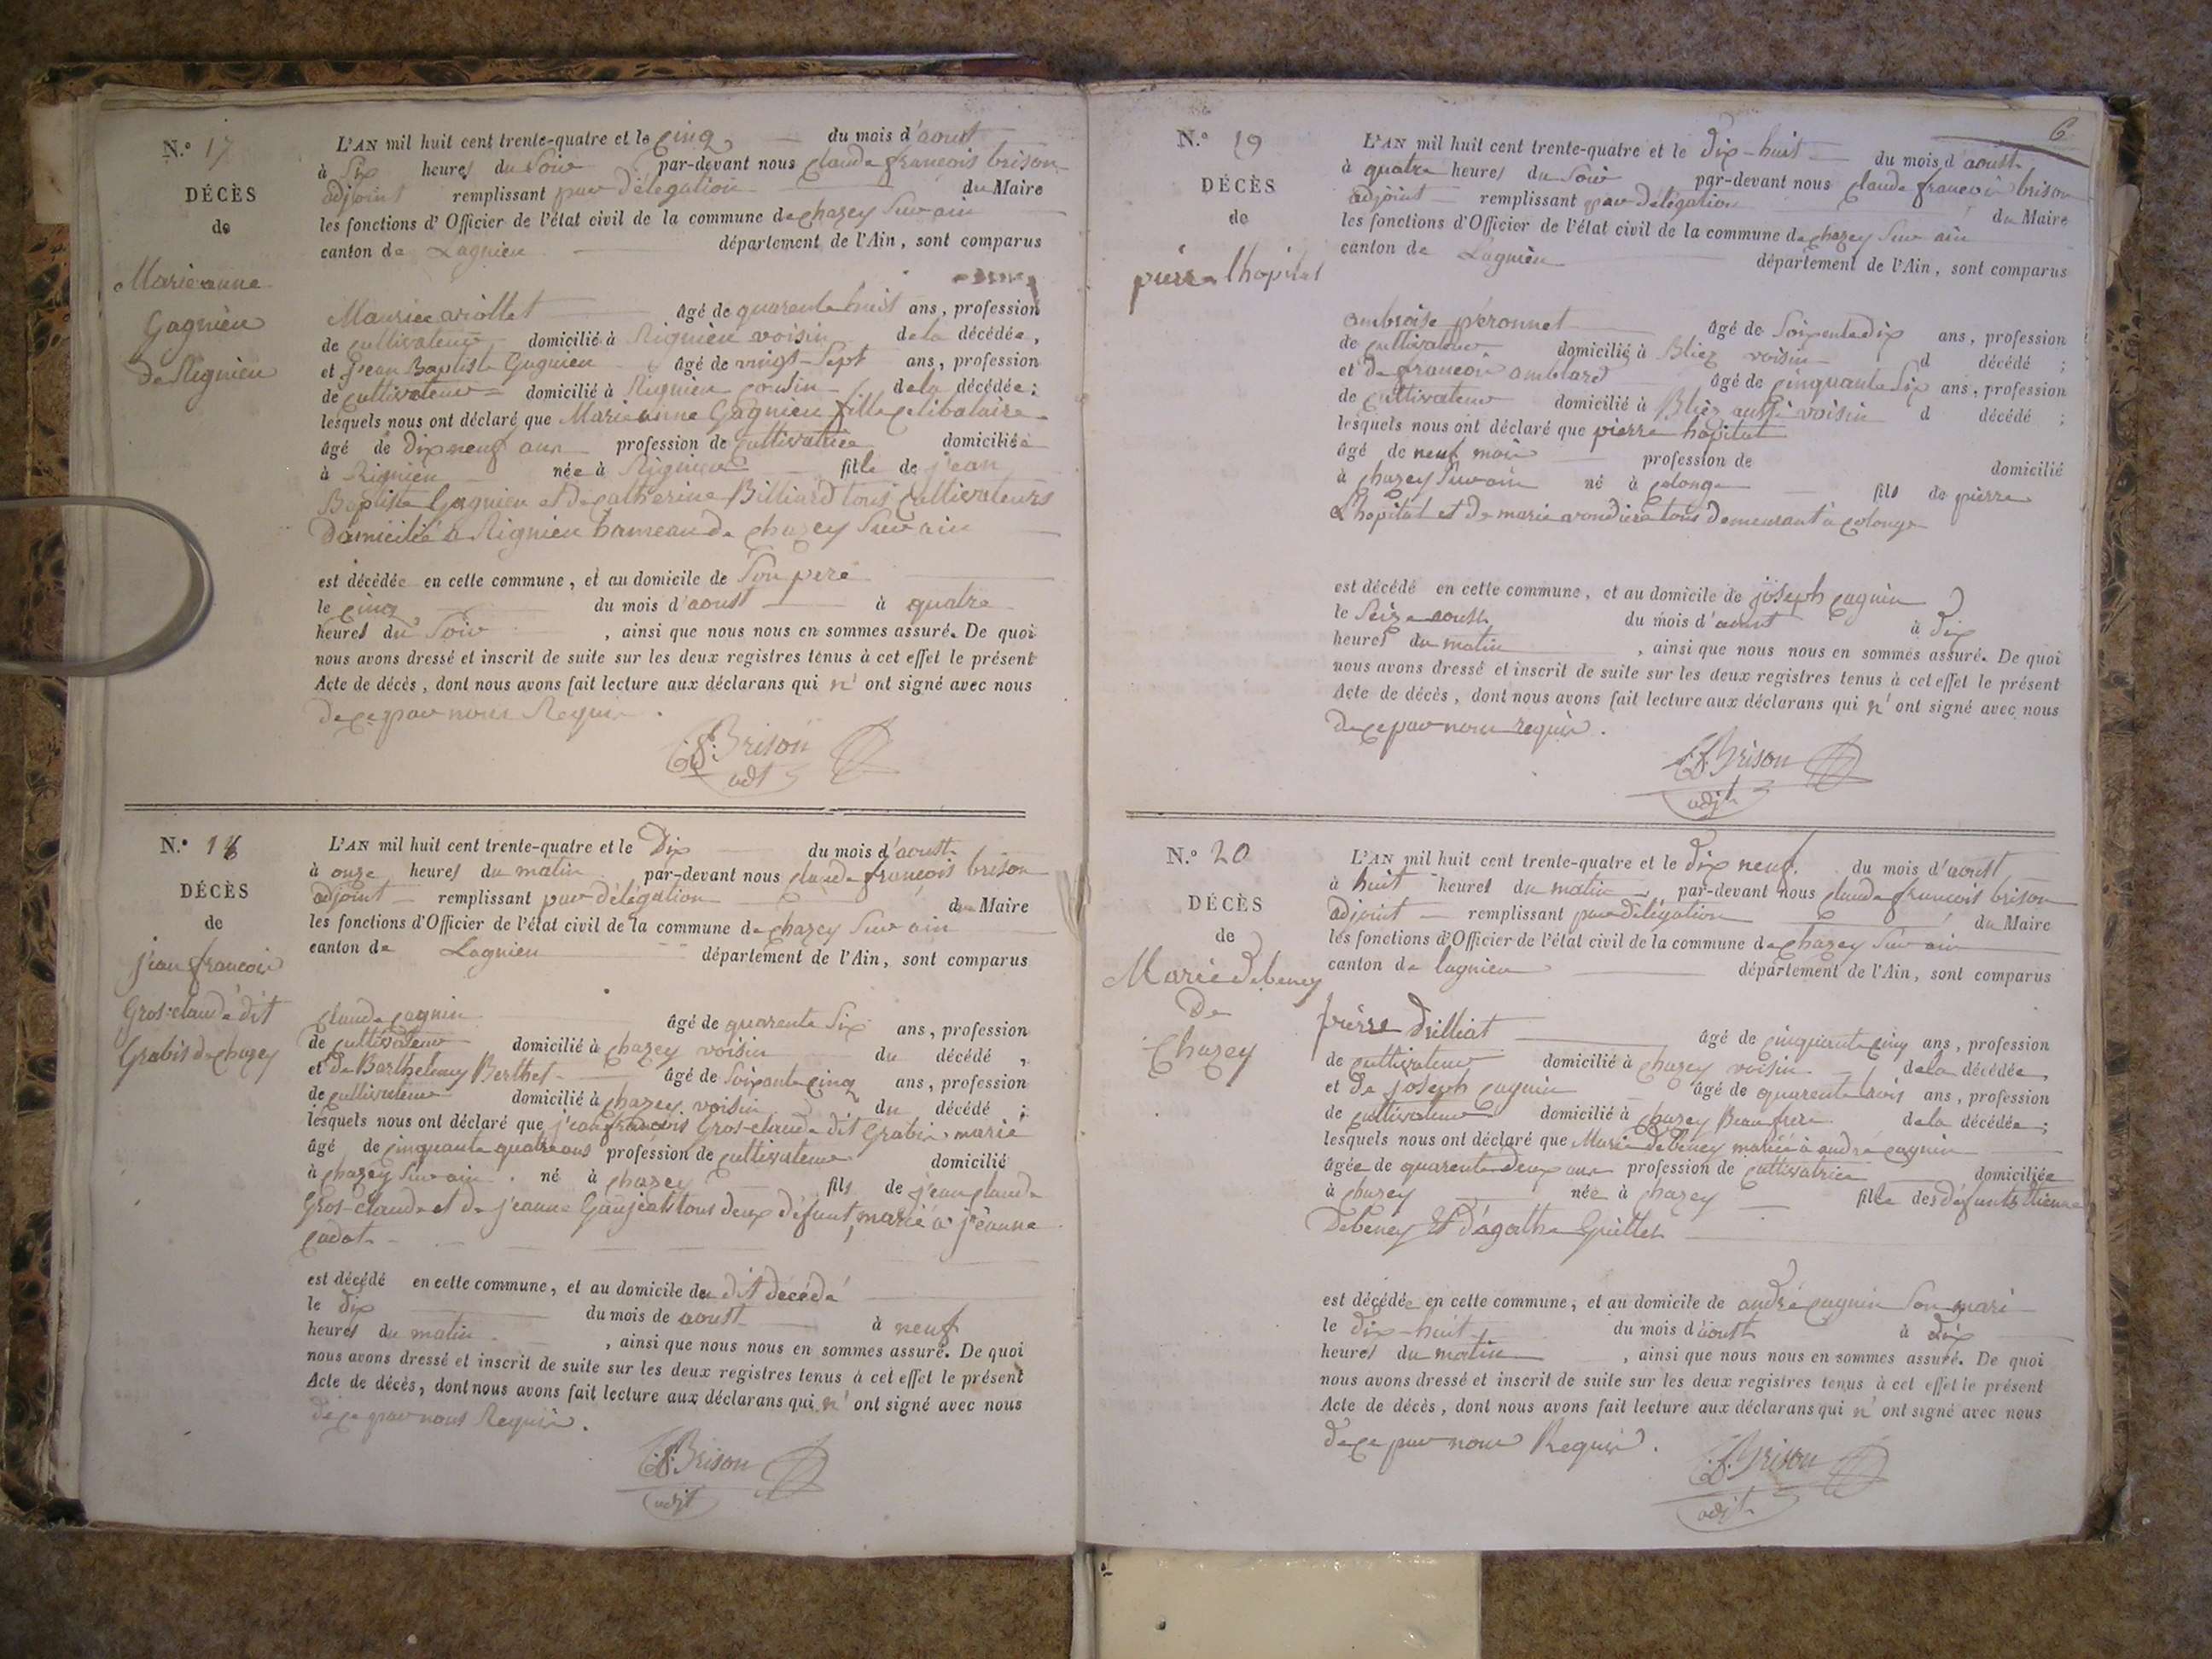 N.º 17
DÉCÈS
de
Marie anne
Gagnieu
de Rignieu
L'AN mil huit cent trente-quatre et le cinq du mois d'aoust
à Six heures du Soir par-devant nous claude françois brison
adjoint remplissant par délégation du Maire
les fonctions d'Officier de l'état civil de la commune de chazey Sur ain
canton de Lagnieu département de l'Ain, sont comparus
Maurice viollet âgé de quarente huit ans, profession
de cultivateur domicilié à Rignieu voisin de la décédée,
et Jean Baptiste Gagnieu âgé de vingt-Sept ans, profession
de cultivateur domicilié à Rignieu cousin de la décédée;
lesquels nous ont déclaré que Marie anne Gagnieu fille celibataire
âgé de dix neuf ans profession de cultivatrice domiciliée
à Rignieu née à Rignieu fille de jean
Baptiste Gagnieu et de catherine Billiard tous cultivateurs
Domicilié à Rignieu hameau de chazey Sur ain
est décédée en cette commune, et au domicile de Son pere
le cinq du mois d'aoust à quatre
heures du Soir, ainsi que nous nous en sommes assuré. De quoi
nous avons dressé et inscrit de suite sur les deux registres tenus à cet effet le présent
Acte de décès, dont nous avons fait lecture aux déclarans qui n'ont signé avec nous
de ce par nous Requis.
C. f. Brison
adt
N.º 18
DÉCÈS
de
jean francois
Gros-claude dit
Grabis de chazey
L'AN mil huit cent trente-quatre et le Dix du mois d'aoust
à onze heures du matin par-devant nous claude françois brison
adjoint remplissant par délégation du Maire
les fonctions d'Officier de l'état civil de la commune de chazey Sur ain
canton de Lagnieu département de l'Ain, sont comparus
claude cagnin âgé de quarente Six ans, profession
de cultivateur domicilié à chazey voisin du décédé,
et de Barthelemy Berthet âgé de Soixante cinq ans, profession
de cultivateur domicilié à chazey voisin du décédé;
lesquels nous ont déclaré que jean francois Gros-claude dit Grabis marié
âgé de cinquante quatre ans profession de cultivateur domicilié
à chazey Sur ain né à chazey fils de jean claude
Gros-claude et de jeanne Gaujeat tous deux défunt, marié à jeanne
cadot
est décédé en cette commune, et au domicile du dit décédé
le dix du mois de aoust à neuf
heures du matin, ainsi que nous nous en sommes assuré. De quoi
nous avons dressé et inscrit de suite sur les deux registres tenus à cet effet le présent
Acte de décès, dont nous avons fait lecture aux déclarans qui n'ont signé avec nous
de ce par nous Requis.
C. f. Brison
adjt
6
N.º 19
DÉCÈS
de
pierre lhopital
L'AN mil huit cent trente-quatre et le dix-huit du mois d'aoust
à quatre heures du Soir par-devant nous claude francois brison
adjoint remplissant par délégation du Maire
les fonctions d'Officier de l'état civil de la commune de chazey Sur ain
canton de Lagnieu département de l'Ain, sont comparus
ambroise peronnet âgé de Soixente dix ans, profession
de cultivateur domicilié à Bliez voisin d décédé;
et de francois amblard âgé de cinquante Six ans, profession
de cultivateur domicilié à Bliez aussi voisin d décédé;
lesquels nous ont déclaré que pierre hopital
âgé de neuf mois profession de domicilié
à chazey Sur ain né à colonge fils de pierre
L'hopital et de marie vondiere tous demeurant à colonge
est décédé en cette commune, et au domicile de joseph cagnin
le Seize aoust du mois d'aoust à dix
heures du matin, ainsi que nous nous en sommes assuré. De quoi
nous avons dressé et inscrit de suite sur les deux registres tenus à cet effet le présent
Acte de décès, dont nous avons fait lecture aux déclarans qui n'ont signé avec nous
de ce par nous requis.
C. f. Brison
adjt
N.º 20
DÉCÈS
de
Marie debeney
De
Chazey
L'AN mil huit cent trente-quatre et le dix neuf du mois d'aoust
à huit heures du matin par-devant nous claude francois brison
adjoint remplissant par délégation du Maire
les fonctions d'Officier de l'état civil de la commune de chazey Sur ain
canton de lagnieu département de l'Ain, sont comparus
pierre drilliat âgé de cinquante cinq ans, profession
de cultivateur domicilié à chazey voisin de la décédée,
et de joseph cagnin âgé de quarente trois ans, profession
de cultivateur domicilié à chazey Beau frere de la décédée;
lesquels nous ont déclaré que Marie debeney mariée à andré cagnin
âgée de quarente deux ans profession de cultivatrice domiciliée
à chazey née à chazey fille des défunts Etienne
Debeney Et d'agathe Guillet
est décédée en cette commune, et au domicile de andré cagnin Son mari
le dix-huit du mois d'aoust à dix
heures du matin, ainsi que nous nous en sommes assuré. De quoi
nous avons dressé et inscrit de suite sur les deux registres tenus à cet effet le présent
Acte de décès, dont nous avons fait lecture aux déclarans qui n'ont signé avec nous
de ce par nous Requis.
C. f. Brison
adjt